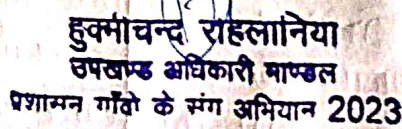 हुक्मीचन्द रोहलानिया
उपखण्ड अधिकारी माण्डल
प्रशासन गाँवो के संग अभियान 2023